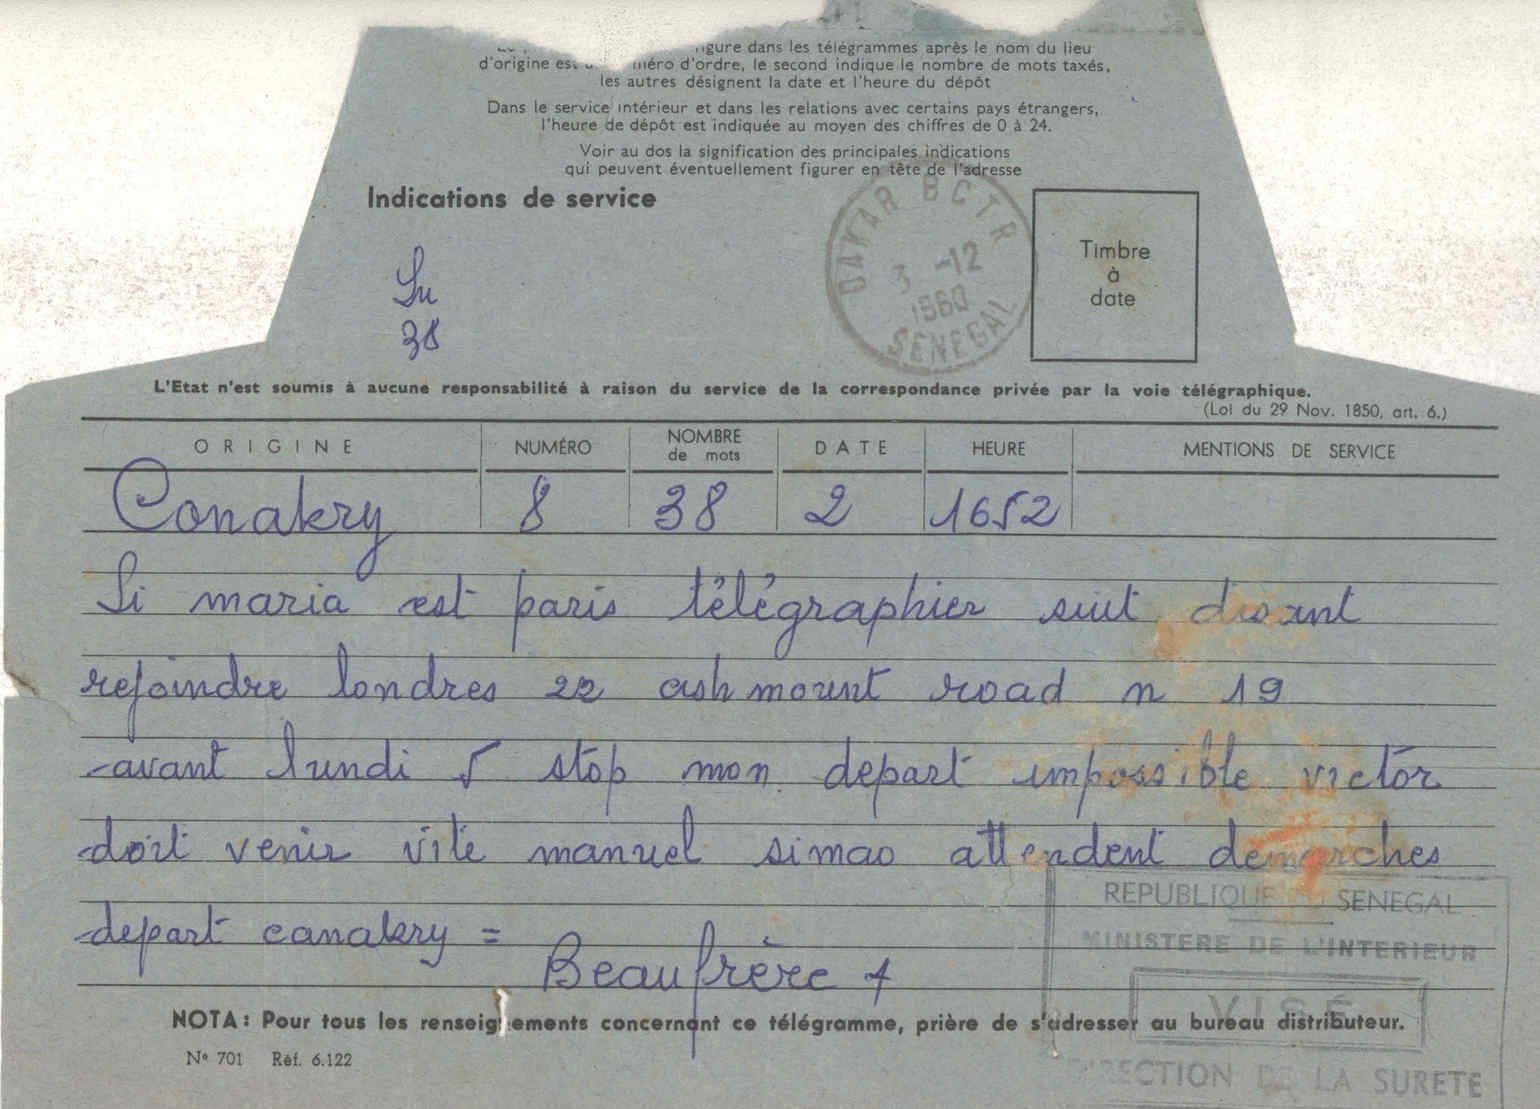 figure dans les télégrammes après le nom du lieu
d'origine est numéro d'ordre, le second indique le nombre de mots taxés,
les autres désignent la date et l'heure du dépôt
Dans le service intérieur et dans les relations avec certains pays étrangers,
l'heure de dépôt est indiquée au moyen des chiffres de 0 à 24.
Voir au dos la signification des principales indications
qui peuvent éventuellement figurer en tête de l'adresse
Indications de service
38
DAKAR BCTR
3 -12
1960
SENEGAL
Timbre
à
date
L'Etat n'est soumis à aucune responsabilité à raison du service de la correspondance privée par la voie télégraphique.
(Loi du 29 Nov. 1850, art. 6.)
ORIGINE NUMÉRO NOMBRE de mots DATE HEURE MENTIONS DE SERVICE
Conakry 8 38 2 1652
Si maria est paris télégraphier suit disant
rejoindre londres 22 ashmount road n 19
avant lundi 5 stop mon depart impossible victor
doit venir vite manuel simao attendent demarches
depart canakry =
Beaufrère +
REPUBLIQUE DU SENEGAL
MINISTERE DE L'INTERIEUR
VISÉ
DIRECTION DE LA SURETE
NOTA : Pour tous les renseignements concernant ce télégramme, prière de s'adresser au bureau distributeur.
Nº 701 Réf. 6.122